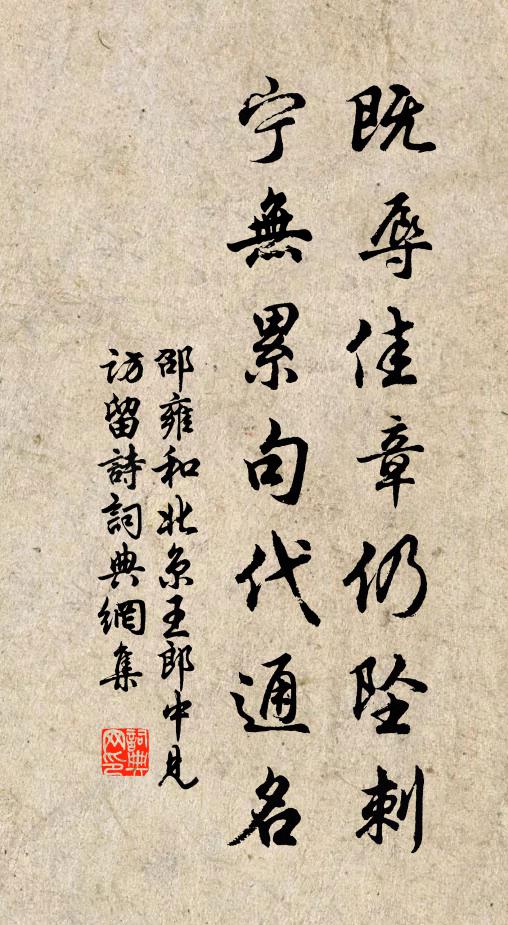 既辱佳章仍坠刺
宁無累句代通名
邵雍和北京王郎中見
访留詩詞典網集
詞典网印